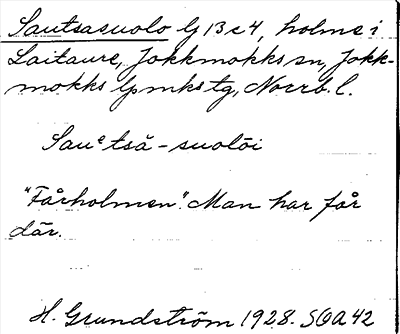 Sautsasuolo lj 13 c 4, holme i
Laitaure, Jokkmokks sn, Jokk-
mokks lpmks tg, Norrb. l.
Sauᵉtså-suolōi
"Fårholmen". Man har får
där.
H. Grundström 1928. SOA 42